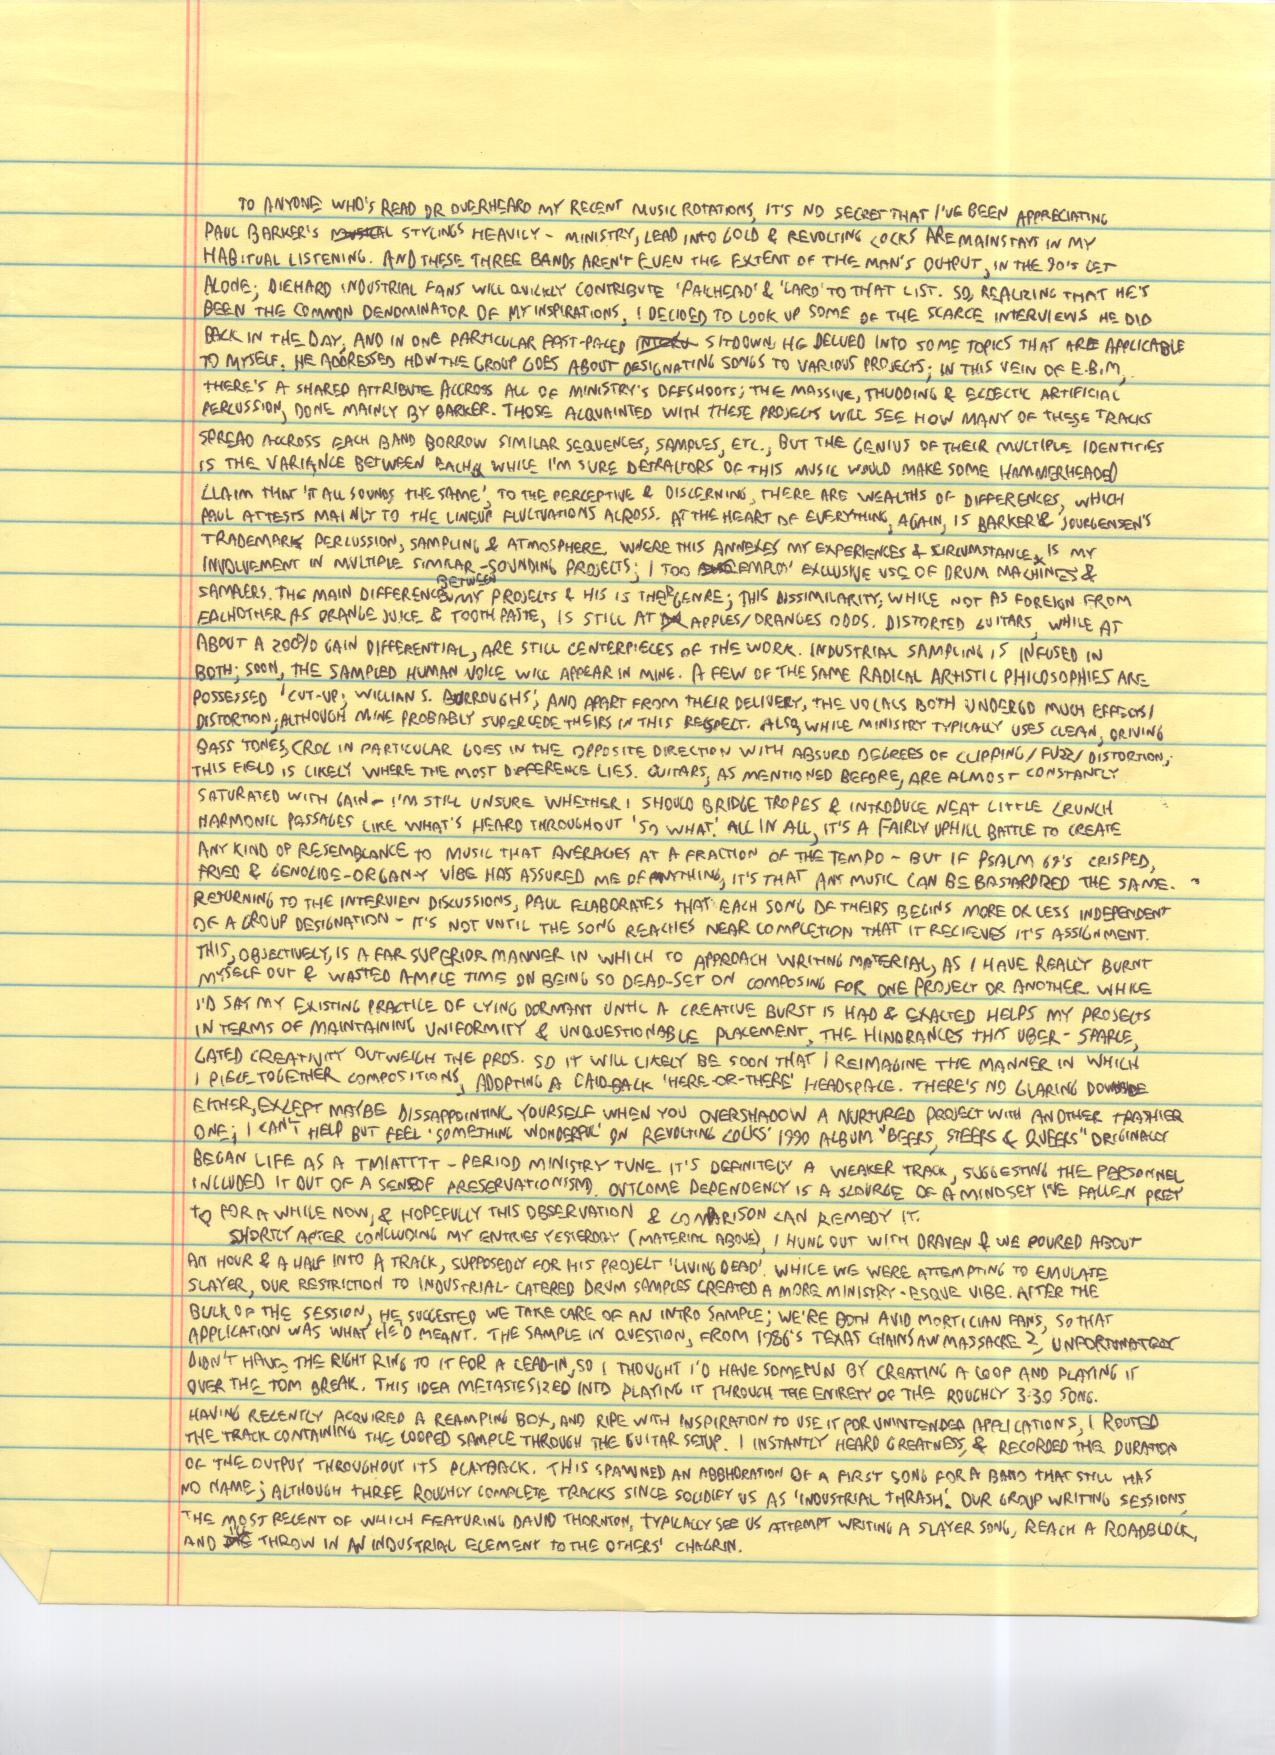 TO ANYONE WHO'S READ OR OVERHEARD MY RECENT MUSIC ROTATIONS, IT'S NO SECRET THAT I'VE BEEN APPRECIATING
PAUL BARKER'S STYLINGS HEAVILY - MINISTRY, LEAD INTO GOLD & REVOLTING COCKS ARE MAINSTAYS IN MY
HABITUAL LISTENING. AND THESE THREE BANDS AREN'T EVEN THE EXTENT OF THE MAN'S OUTPUT, IN THE 90'S LET
ALONE; DIEHARD INDUSTRIAL FANS WILL QUICKLY CONTRIBUTE 'PAILHEAD' & 'LARD' TO THAT LIST. SO, REALIZING THAT HE'S
BEEN THE COMMON DENOMINATOR OF MY INSPIRATIONS, I DECIDED TO LOOK UP SOME OF THE SCARCE INTERVIEWS HE DID
BACK IN THE DAY, AND IN ONE PARTICULAR FAST-PACED SITDOWN, HE DELVED INTO SOME TOPICS THAT ARE APPLICABLE
TO MYSELF. HE ADDRESSED HOW THE GROUP GOES ABOUT DESIGNATING SONGS TO VARIOUS PROJECTS; IN THIS VEIN OF E.B.M,
THERE'S A SHARED ATTRIBUTE ACCROSS ALL OF MINISTRY'S OFFSHOOTS; THE MASSIVE, THUDDING & ECLECTIC ARTIFICIAL
PERCUSSION, DONE MAINLY BY BARKER. THOSE ACQUAINTED WITH THESE PROJECTS WILL SEE HOW MANY OF THESE TRACKS
SPREAD ACCROSS EACH BAND BORROW SIMILAR SEQUENCES, SAMPLES, ETC., BUT THE GENIUS OF THEIR MULTIPLE IDENTITIES
IS THE VARIANCE BETWEEN EACH. WHILE I'M SURE DETRACTORS OF THIS MUSIC WOULD MAKE SOME HAMMERHEADED
CLAIM THAT 'IT ALL SOUNDS THE SAME', TO THE PERCEPTIVE & DISCERNING, THERE ARE WEALTHS OF DIFFERENCES, WHICH
PAUL ATTESTS MAINLY TO THE LINEUP FLUCTUATIONS ACROSS. AT THE HEART OF EVERYTHING, AGAIN, IS BARKER & JOURGENSEN'S
TRADEMARK PERCUSSION, SAMPLING & ATMOSPHERE. WHERE THIS ANNEXES MY EXPERIENCES & CIRCUMSTANCE, IS MY
INVOLVEMENT IN MULTIPLE SIMILAR-SOUNDING PROJECTS; I TOO EMPLOY EXCLUSIVE USE OF DRUM MACHINES &
SAMPLERS. THE MAIN DIFFERENCE BETWEEN MY PROJECTS & HIS IS THE GENRE; THIS DISSIMILARITY, WHILE NOT AS FOREIGN FROM
EACHOTHER AS ORANGE JUICE & TOOTHPASTE, IS STILL AT APPLES/ORANGES ODDS. DISTORTED GUITARS, WHILE AT
ABOUT A 200% GAIN DIFFERENTIAL, ARE STILL CENTERPIECES OF THE WORK. INDUSTRIAL SAMPLING IS INFUSED IN
BOTH; SOON, THE SAMPLED HUMAN VOICE WILL APPEAR IN MINE. A FEW OF THE SAME RADICAL ARTISTIC PHILOSOPHIES ARE
POSSESSED 'CUT-UP; WILLIAM S. BURROUGHS', AND APART FROM THEIR DELIVERY, THE VOCALS BOTH UNDERGO MUCH EFFECTS/
DISTORTION; ALTHOUGH MINE PROBABLY SUPERCEDE THEIRS IN THIS RESPECT. ALSO, WHILE MINISTRY TYPICALLY USES CLEAN, DRIVING
BASS TONES, CROC IN PARTICULAR GOES IN THE OPPOSITE DIRECTION WITH ABSURD DEGREES OF CLIPPING/FUZZ/DISTORTION;
THIS FIELD IS LIKELY WHERE THE MOST DIFFERENCE LIES. GUITARS, AS MENTIONED BEFORE, ARE ALMOST CONSTANTLY
SATURATED WITH GAIN - I'M STILL UNSURE WHETHER I SHOULD BRIDGE TROPES & INTRODUCE NEAT LITTLE CRUNCH
HARMONIC PASSAGES LIKE WHAT'S HEARD THROUGHOUT 'SO WHAT.' ALL IN ALL, IT'S A FAIRLY UPHILL BATTLE TO CREATE
ANY KIND OF RESEMBLANCE TO MUSIC THAT AVERAGES AT A FRACTION OF THE TEMPO - BUT IF PSALM 69'S CRISPED,
FRIED & GENOCIDE-ORGAN-Y VIBE HAS ASSURED ME OF ANYTHING, IT'S THAT ANY MUSIC CAN BE BASTARDIZED THE SAME.
RETURNING TO THE INTERVIEW DISCUSSIONS, PAUL ELABORATES THAT EACH SONG OF THEIRS BEGINS MORE OR LESS INDEPENDENT
OF A GROUP DESIGNATION - IT'S NOT UNTIL THE SONG REACHES NEAR COMPLETION THAT IT RECIEVES IT'S ASSIGNMENT.
THIS, OBJECTIVELY, IS A FAR SUPERIOR MANNER IN WHICH TO APPROACH WRITING MATERIAL, AS I HAVE REALLY BURNT
MYSELF OUT & WASTED AMPLE TIME ON BEING SO DEAD-SET ON COMPOSING FOR ONE PROJECT OR ANOTHER. WHILE
I'D SAY MY EXISTING PRACTICE OF LYING DORMANT UNTIL A CREATIVE BURST IS HAD & EXALTED HELPS MY PROJECTS
IN TERMS OF MAINTAINING UNIFORMITY & UNQUESTIONABLE PLACEMENT, THE HINDRANCES THIS UBER-SPARCE,
GATED CREATIVITY OUTWEIGH THE PROS. SO IT WILL LIKELY BE SOON THAT I REIMAGINE THE MANNER IN WHICH
I PIECE TOGETHER COMPOSITIONS, ADOPTING A LAID-BACK 'HERE-OR-THERE' HEADSPACE. THERE'S NO GLARING DOWNSIDE
EITHER, EXCEPT MAYBE DISSAPPOINTING YOURSELF WHEN YOU OVERSHADOW A NURTURED PROJECT WITH ANOTHER TRASHIER
ONE; I CAN'T HELP BUT FEEL 'SOMETHING WONDERFUL' ON REVOLTING COCKS' 1990 ALBUM "BEERS, STEERS & QUEERS" ORIGINALLY
BEGAN LIFE AS A TMIATTTT-PERIOD MINISTRY TUNE. IT'S DEFINITELY A WEAKER TRACK, SUGGESTING THE PERSONNEL
INCLUDED IT OUT OF A SENSE OF PRESERVATIONISM. OUTCOME DEPENDENCY IS A SCOURGE OF A MINDSET I'VE FALLEN PREY
TO FOR A WHILE NOW, & HOPEFULLY THIS OBSERVATION & COMPARISON CAN REMEDY IT.
SHORTLY AFTER CONCLUDING MY ENTRIES YESTERDAY (MATERIAL ABOVE), I HUNG OUT WITH DRAVEN & WE POURED ABOUT
AN HOUR & A HALF INTO A TRACK, SUPPOSEDLY FOR HIS PROJECT 'LIVING DEAD'. WHILE WE WERE ATTEMPTING TO EMULATE
SLAYER, OUR RESTRICTION TO INDUSTRIAL-CATERED DRUM SAMPLES CREATED A MORE MINISTRY-ESQUE VIBE. AFTER THE
BULK OF THE SESSION, HE SUGGESTED WE TAKE CARE OF AN INTRO SAMPLE; WE'RE BOTH AVID MORTICIAN FANS, SO THAT
APPLICATION WAS WHAT HE'D MEANT. THE SAMPLE IN QUESTION, FROM 1986'S TEXAS CHAINSAW MASSACRE 2, UNFORTUNATELY
DIDN'T HAVE THE RIGHT RING TO IT FOR A LEAD-IN, SO I THOUGHT I'D HAVE SOME FUN BY CREATING A LOOP AND PLAYING IT
OVER THE TOM BREAK. THIS IDEA METASTESIZED INTO PLAYING IT THROUGH THE ENTIRETY OF THE ROUGHLY 3:30 SONG.
HAVING RECENTLY ACQUIRED A REAMPING BOX, AND RIPE WITH INSPIRATION TO USE IT FOR UNINTENDED APPLICATIONS, I ROUTED
THE TRACK CONTAINING THE LOOPED SAMPLE THROUGH THE GUITAR SETUP. I INSTANTLY HEARD GREATNESS, & RECORDED THE DURATION
OF THE OUTPUT THROUGHOUT ITS PLAYBACK. THIS SPAWNED AN ABBHORATION OF A FIRST SONG FOR A BAND THAT STILL HAS
NO NAME; ALTHOUGH THREE ROUGHLY COMPLETE TRACKS SINCE SOLIDIFY US AS 'INDUSTRIAL THRASH'. OUR GROUP WRITING SESSIONS,
THE MOST RECENT OF WHICH FEATURING DAVID THORNTON, TYPICALLY SEE US ATTEMPT WRITING A SLAYER SONG, REACH A ROADBLOCK,
AND THROW IN AN INDUSTRIAL ELEMENT TO THE OTHERS' CHAGRIN.